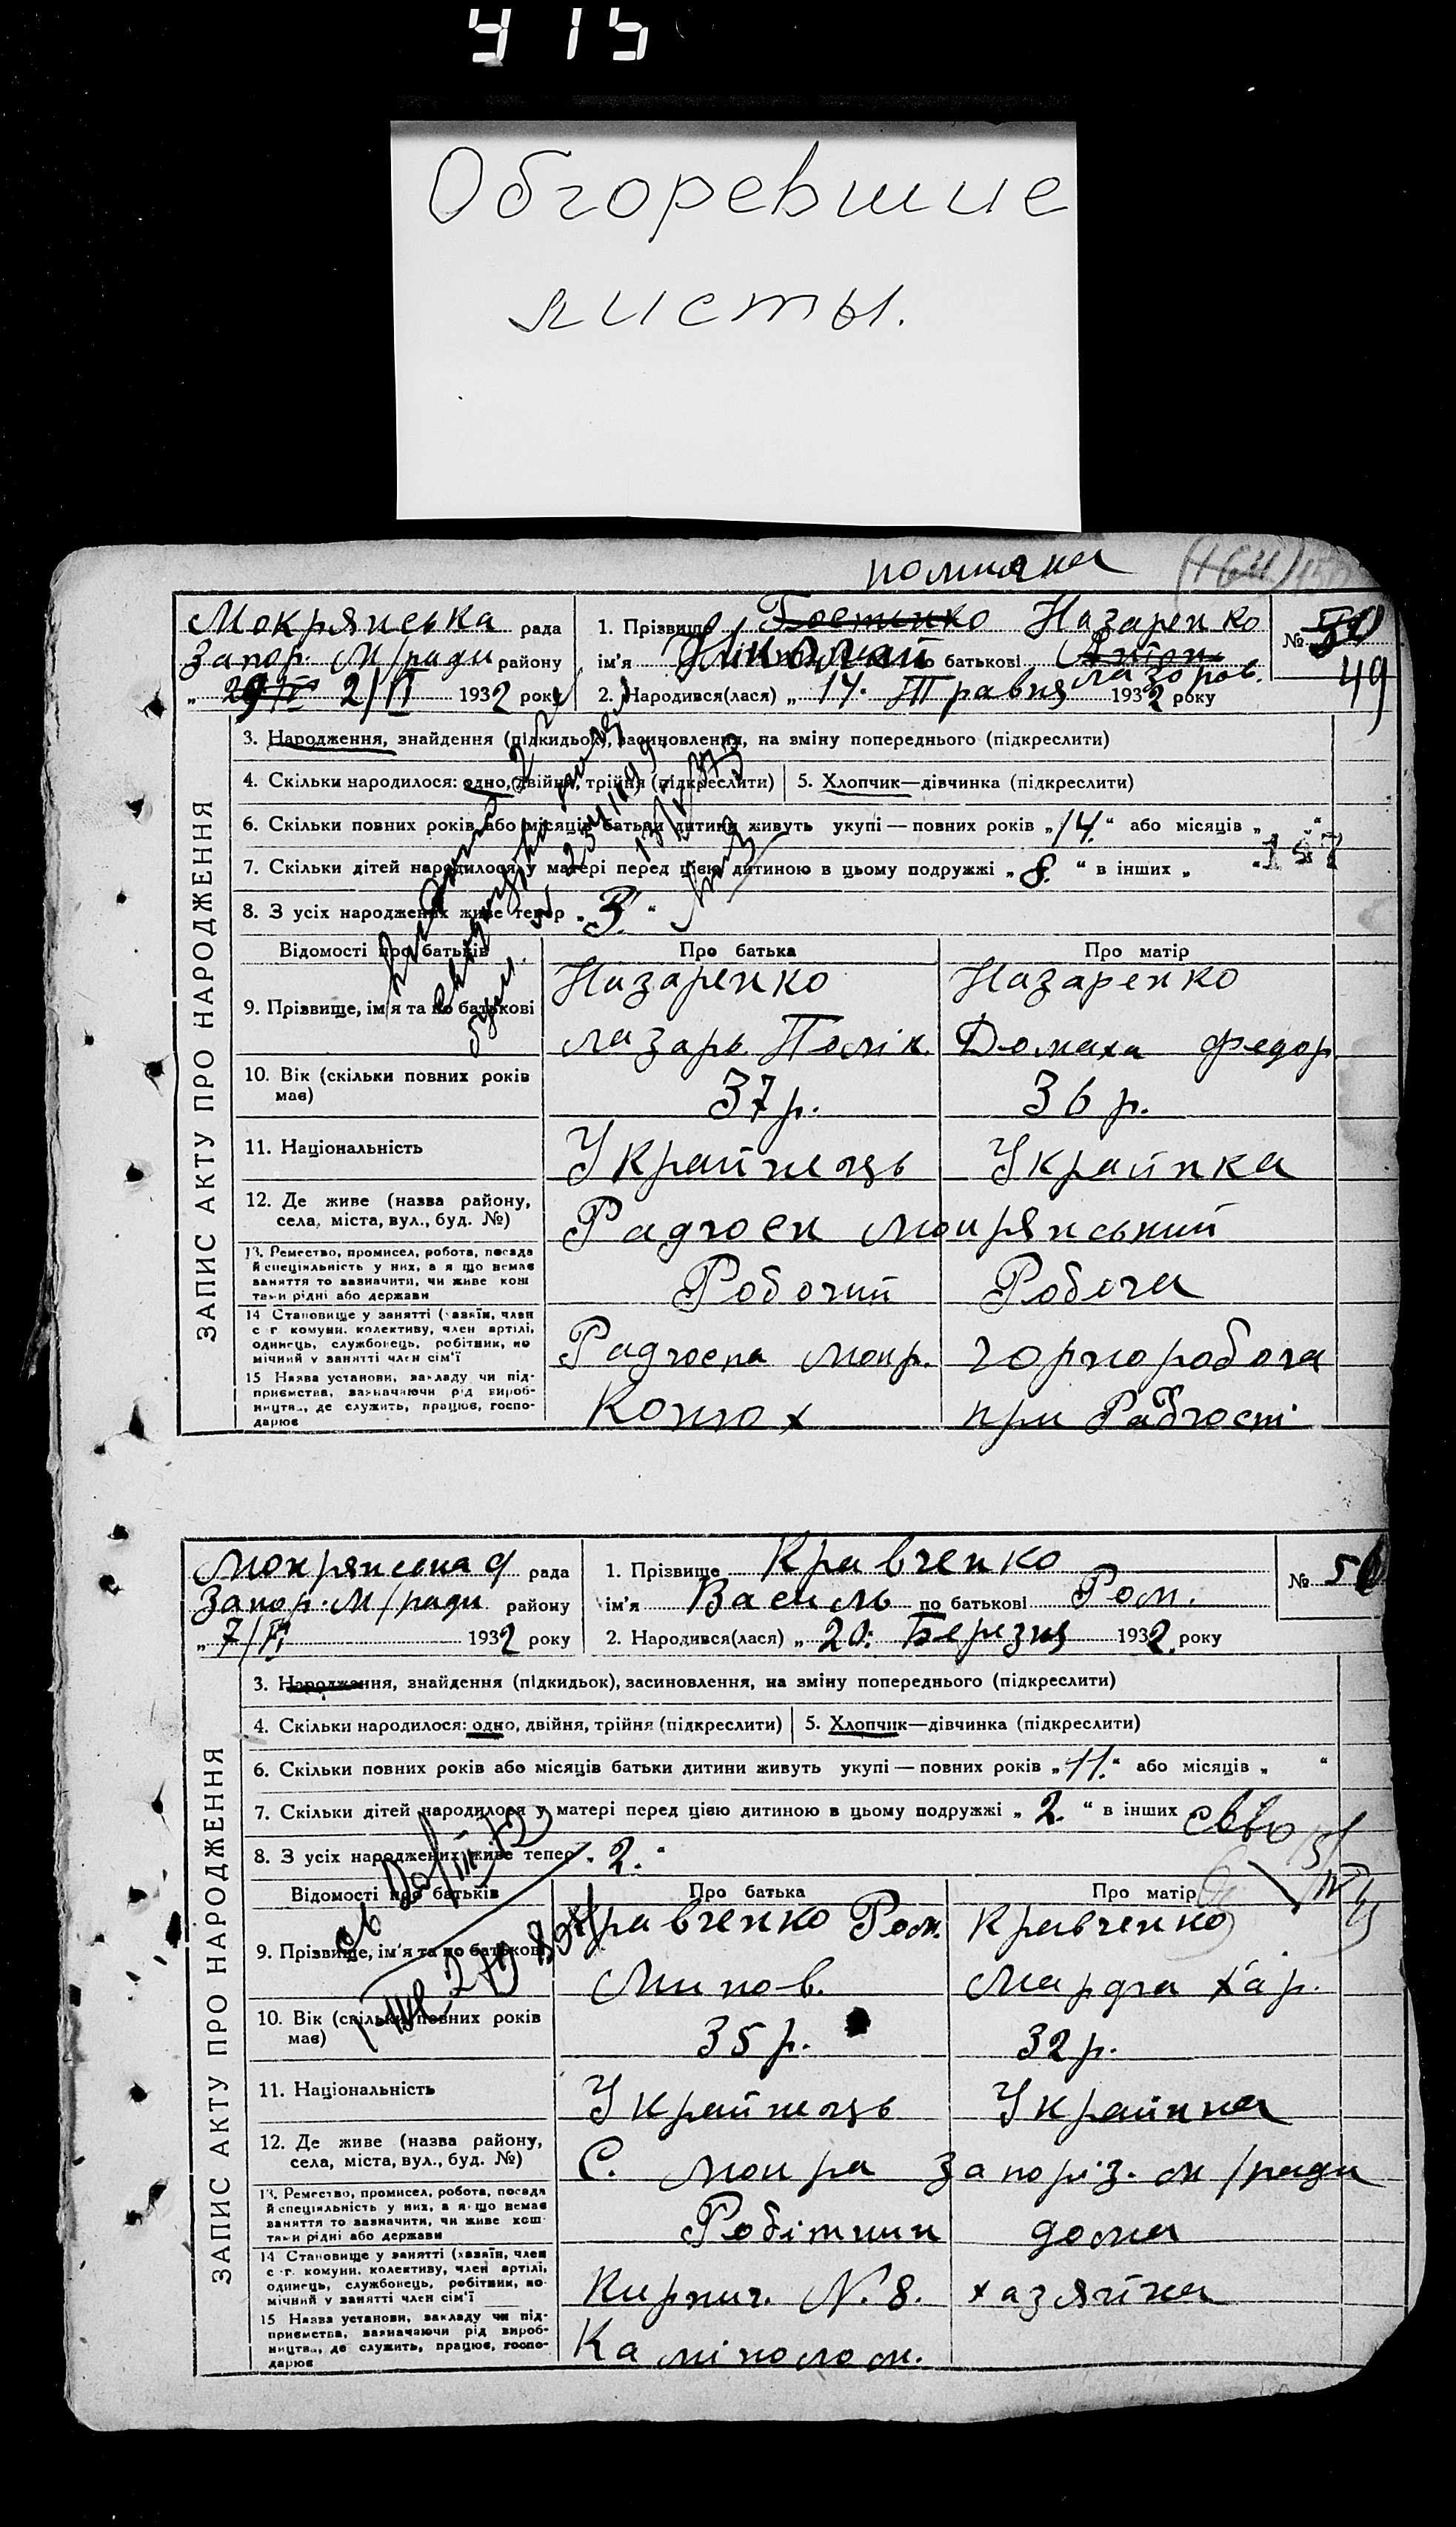 Обгоревшие
листы.
помилка
Мокрянська рада
Запор. М/ради району
2/VI 1932 року
1. Прізвище Назаренко
ім'я Николай по батькові Лазоров.
2. Народився(лася) „ 14. Травня 1932 року
№
49
ЗАПИС АКТУ ПРО НАРОДЖЕННЯ
3. Народження, знайдення (підкидьок), засиновлення, на зміну попереднього (підкреслити)
4. Скільки народилося: одно, двійня, трійня (підкреслити) 5. Хлопчик—дівчинка (підкреслити)
6. Скільки повних років або місяців батьки дитини живуть укупі — повних років „ 14. “ або місяців „ “
7. Скільки дітей народилося у матері перед цією дитиною в цьому подружжі „ 8. “ в інших „
8. З усіх народжених живе тепер „ 3. “
Відомості про батьків Про батька Про матір
9. Прізвище, ім'я та по батькові Назаренко Назаренко
Лазарь Полік. Домаха Федор
10. Вік (скільки повних років має) 37 р. 36 р.
11. Національність Українець Українка
12. Де живе (назва району, села, міста, вул., буд. №) Радгосп Мокрянський
13. Ремество, промисел, робота, посада й спеціяльність у них, а я що немає заняття то зазначити, чи живе коштами рідні або держави Робочий Робоча
14 Становище у занятті (хазяїн, член с г комуни. колективу, член артілі, одинець, службовець, робітник, помічний у занятті член сім'ї Радгоспа Мокр. чорноробоча
15 Назва установи, закладу чи підприємства, зазначаючи рід виробництва, де служить, працює, господарює Конюх при Радгоспі
Мокрянська рада
Запор. М/ради району
„ 7/VI 1932 року
1. Прізвище Кравченко
ім'я Василь по батькові Ром.
2. Народився(лася) „ 20. Березня 1932 року
№ 50
ЗАПИС АКТУ ПРО НАРОДЖЕННЯ
3. Народження, знайдення (підкидьок), засиновлення, на зміну попереднього (підкреслити)
4. Скільки народилося: одно, двійня, трійня (підкреслити) 5. Хлопчик—дівчинка (підкреслити)
6. Скільки повних років або місяців батьки дитини живуть укупі — повних років „ 11. “ або місяців „ “
7. Скільки дітей народилося у матері перед цією дитиною в цьому подружжі „ 2. “ в інших
8. З усіх народжених живе тепер „ 2. “
Відомості про батьків Про батька Про матір
9. Прізвище, ім'я та по батькові Кравченко Ром. Кравченко
Мино в. Марфа Хар.
10. Вік (скільки повних років має) 35 р. 32 р.
11. Національність Українець Українка
12. Де живе (назва району, села, міста, вул., буд. №) С. Мокра Запоріз. м/ради
13. Ремество, промисел, робота, посада й спеціяльність у них, а я що немає заняття то зазначити, чи живе коштами рідні або держави Робітник дома
14 Становище у занятті (хазяїн, член с г комуни. колективу, член артілі, одинець, службовець, робітник, помічний у занятті член сім'ї Кирпич. N. 8. хазяйка
15 Назва установи, закладу чи підприємства, зазначаючи рід виробництва, де служить, працює, господарює Камінолом.